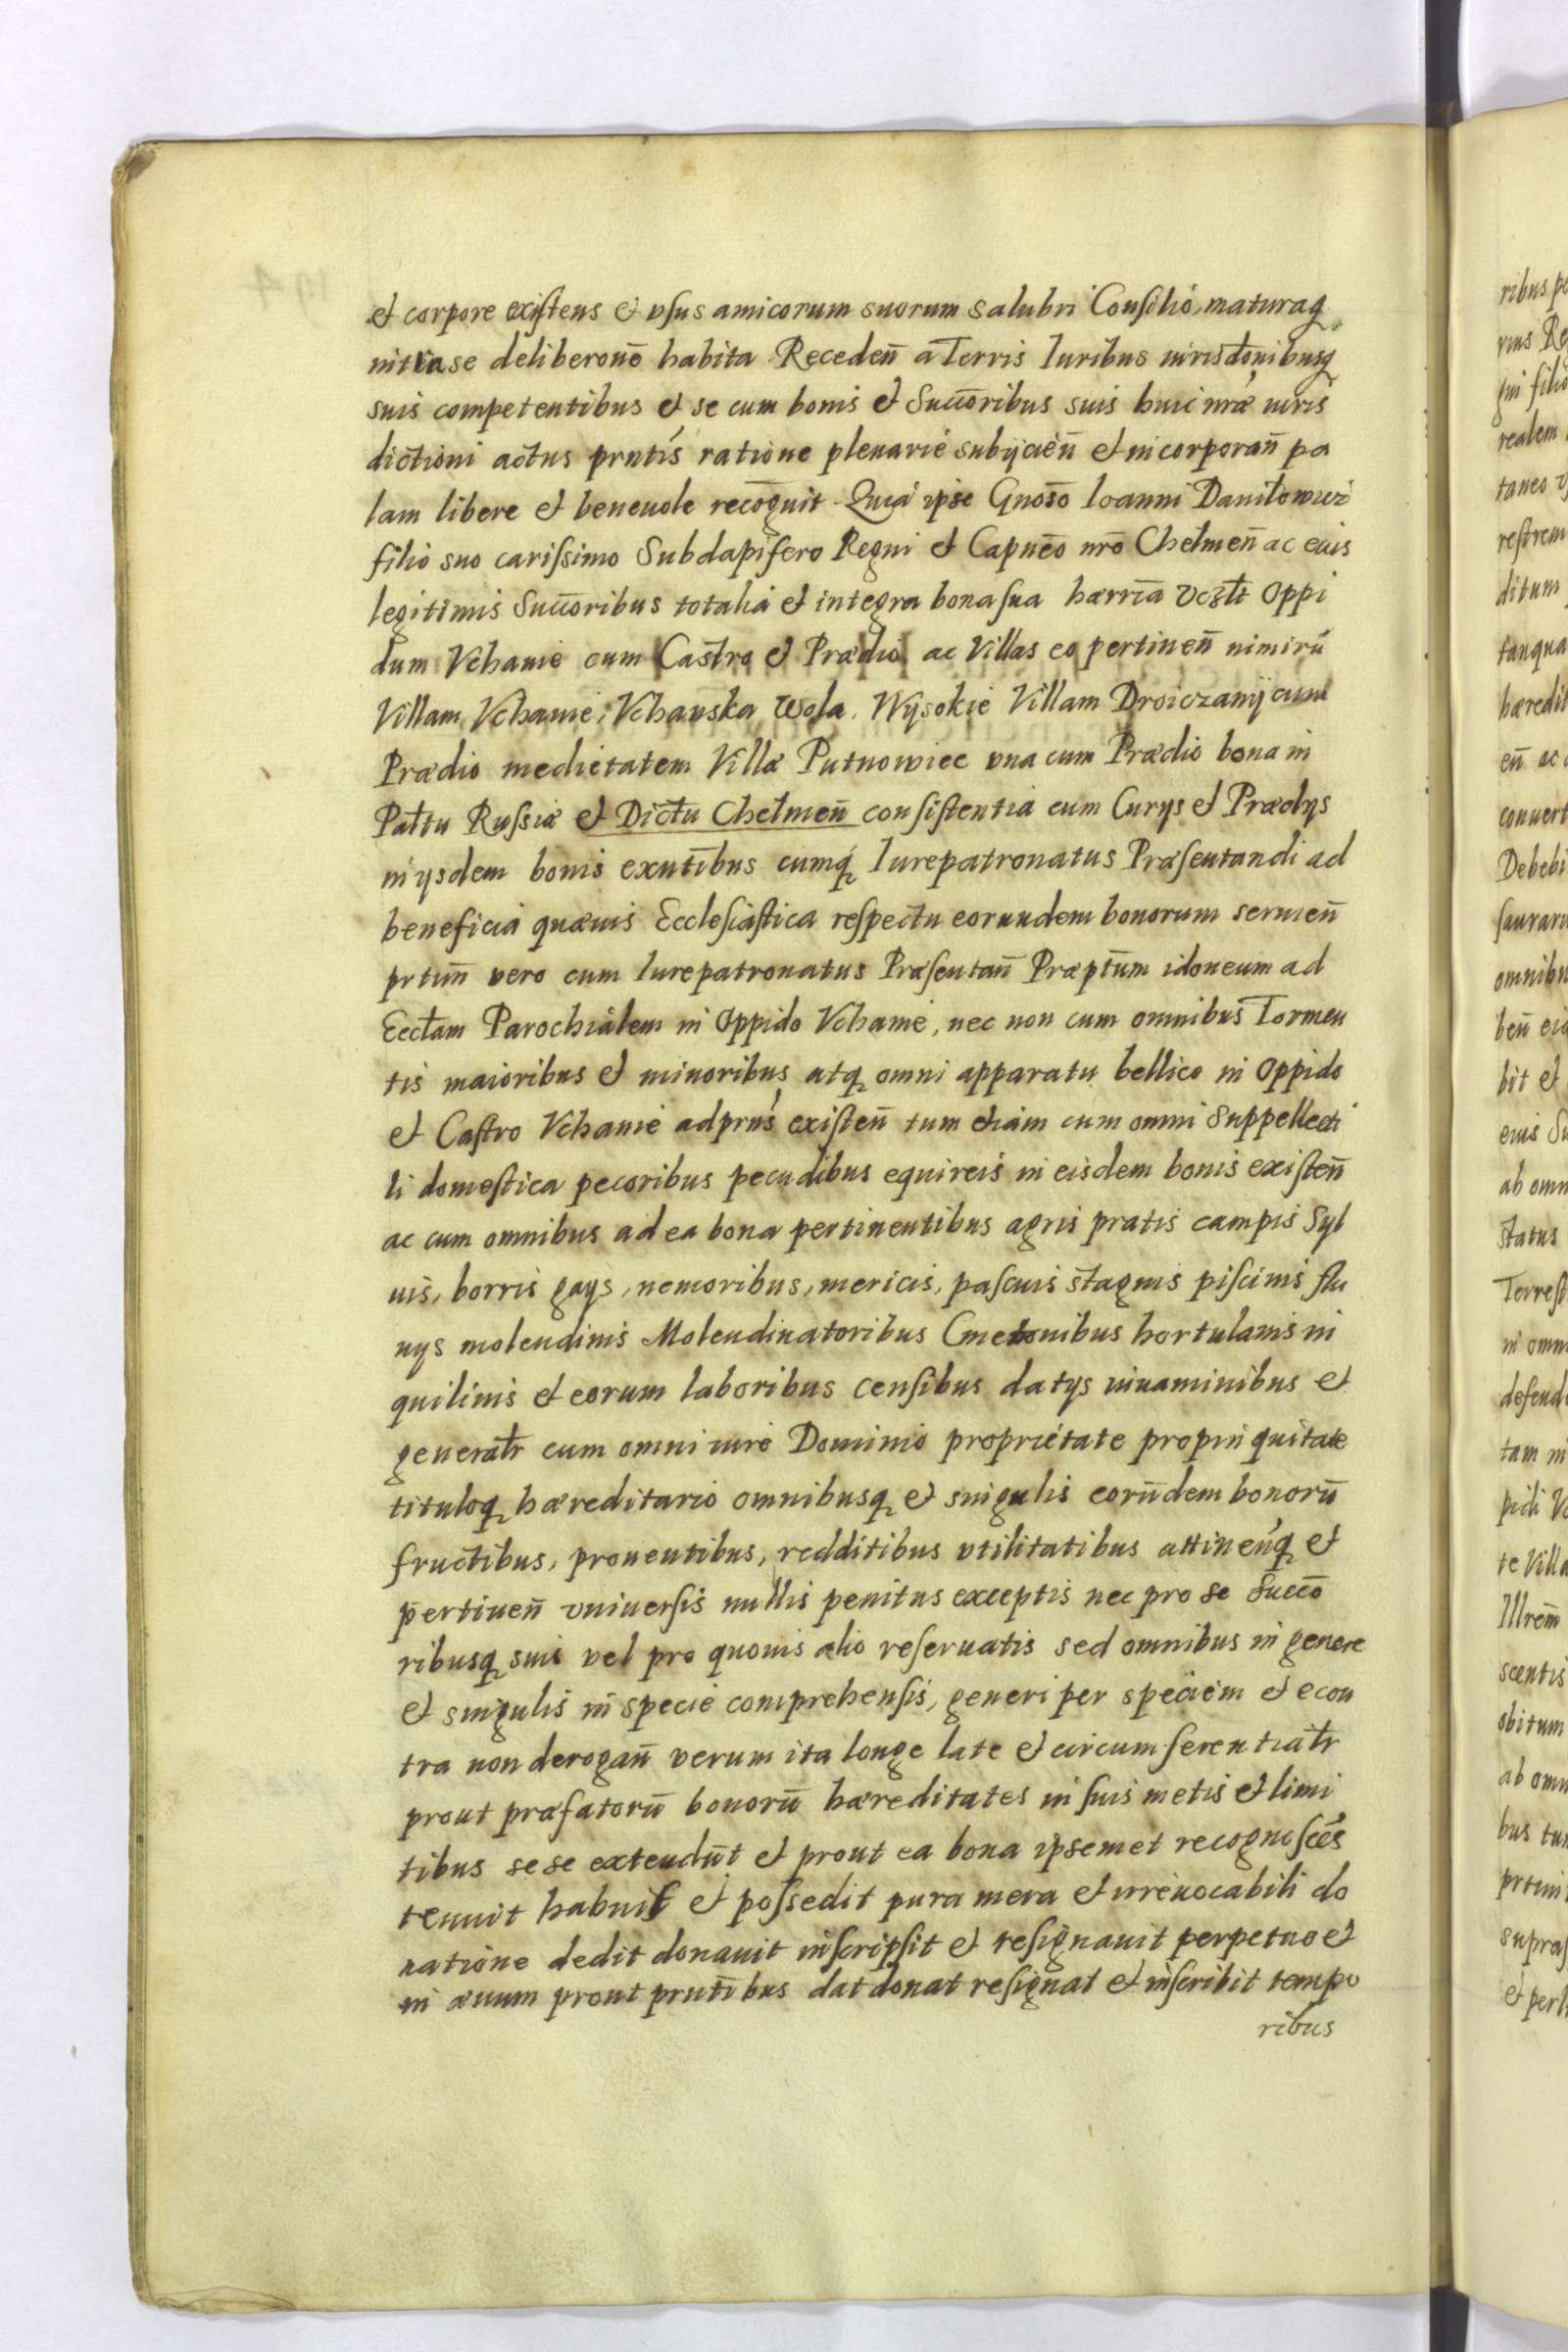 et corpore existens et vsus amicorum suorum salubri Consilio, maturaq
intra se deliberone habita Receden a Terris Iuribus iurisdonibusq
suis competentibus et se cum bonis et Succoribus suis huic nrae iuris
dictioni actus prntis ratione plenarie subijcien et incorporan pa
lam libere et beneuole recognuit Quia ipse Gnoso Ioanni Daniłowicz
filio suo carissimo Subdapifero Regni et Capneo nro Chełmen ac eius
legitimis Succoribus totalia et integra bona sua haerria vczlt Oppi
dum Vchanie cum Castro et Prædio ac Villas eo pertinen nimirū
Villam Vchanie, Vchanska Wola, Wysokie Villam Droiczany cum
Prædio medietatem Villæ Putnowiec vna cum Prædio bona in
Pałtu Russiæ et Dictu Chełmen consistentia cum Curijs et Prædijs
in ijsdem bonis exntibus cumq Iurepatronatus Præsentandi ad
beneficia quæuis Ecclesiastica respectu eorundem bonorum seruien
prtim vero cum Iurepatronatus Præsentan Præptum idoneum ad
Eccłam Parochialem in Oppido Vchanie, nec non cum omnibus Tormen
tis maioribus et minoribus atq omni apparatu bellico in Oppido
et Castro Vchanie ad prns existen tum etiam cum omni Suppellecti
li domestica pecoribus pecudibus equireis in eisdem bonis existen
ac cum omnibus ad ea bona pertinentibus agris pratis campis Syl
uis, borris gays, nemoribus, mericis, pascuis stagnis piscinis flu
uijs molendinis Molendinatoribus Cmetonibus hortulanis in
quilinis et eorum laboribus censibus datijs iuuaminibus et
generałr cum omni iure Dominio proprietate propinquitate
tituloq hæreditario omnibusq et singulis eorūdem bonorū
fructibus, prouentibus, redditibus vtilitatibus attinenq et
pertinen vniuersis nullis penitus exceptis nec pro se Succo
ribusq suis vel pro quouis alio reseruatis sed omnibus in genere
et singulis in specie comprehensis, generi per speciem et econ
tra non derogan verum ita longe late et circumferentiałr
prout præfatorū bonorū hæreditates in suis metis et limi
tibus sese extendūt et prout ea bona ipsemet recognoscēs
tenuit habuit et possedit pura mera et irreuocabili do
natione dedit donauit inscripsit et resignauit perpetuo et
in æuum prout prntibus dat donat resignat et inscribit tempo
ribus